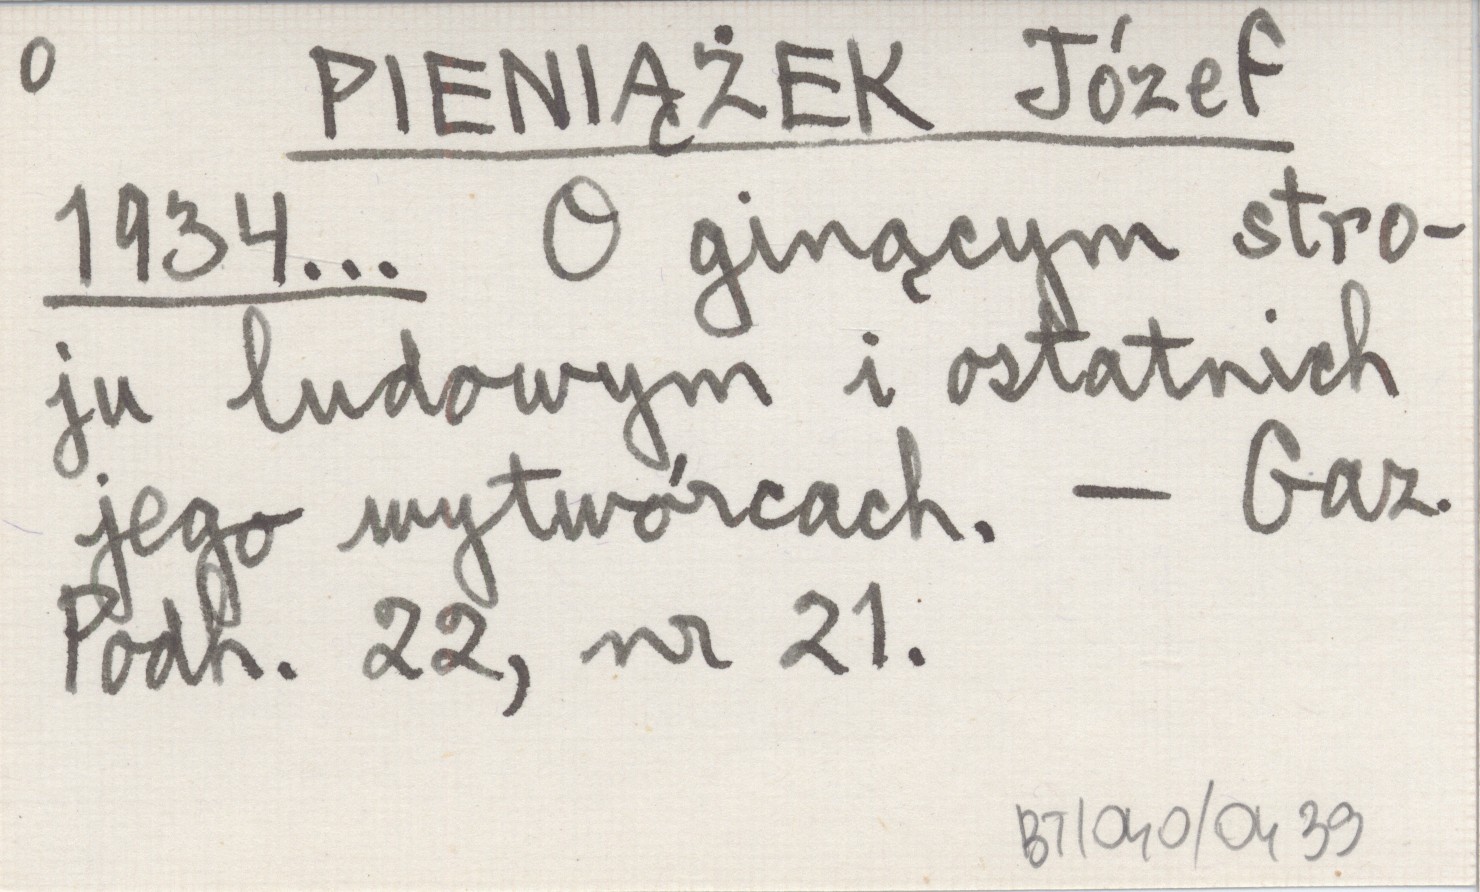 O PIENIĄŻEK Józef
1934... O ginącym stro-
ju ludowym i ostatnich
jego wytwórcach. — Gaz.
Podh. 22, nr 21.
BT/040/0439